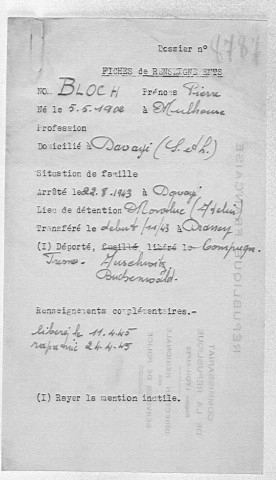 Dossier n° 4787
FICHES de RENSEIGNEMENTS
NOM BLOCH Prénoms Pierre
Né le 5.5.1902 à Mulhouse
Profession
Domicilié à Davayé (S. et L.)
Situation de famille
Arrêté le 22.8.1943 à Davayé
Lieu de détention Montluc
Transféré le debut 11/43 à Drancy
(I) Déporté, fusillé libéré le
Auschwitz
Buchenwald
Renseignements complémentaires.-
libéré le 11.4.45
rapatrié 24.4.45
(I) Rayer la mention inutile.
RÉPUBLIQUE FRANÇAISE
COMMISSARIAT
DE LA RÉPUBLIQUE
DIRECTION RÉGIONALE
SERVICES DE POLICE